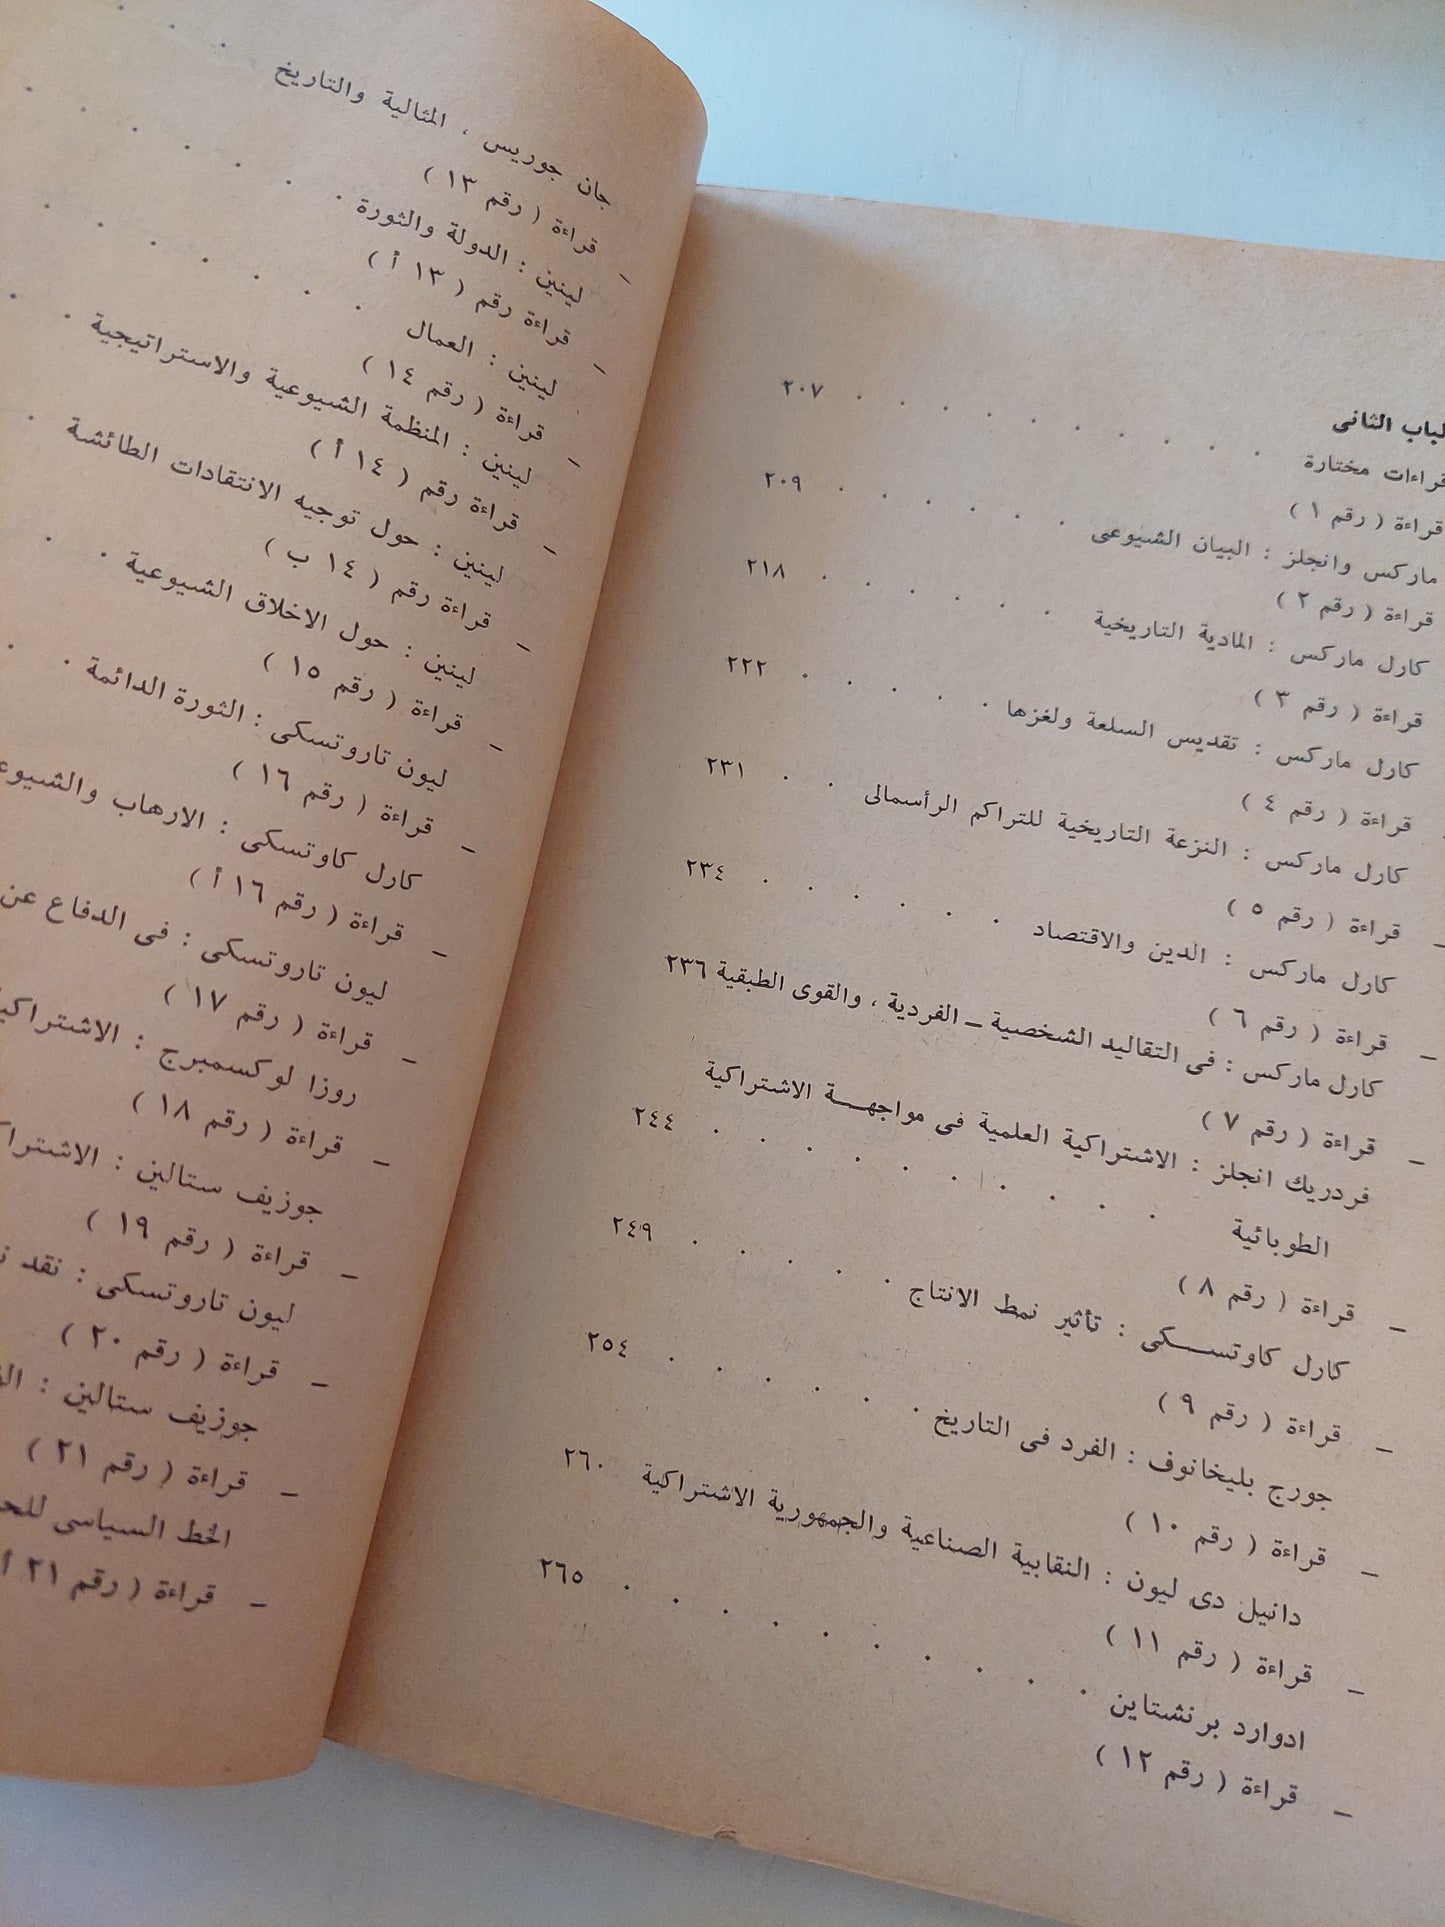 الباب الثانى
قراءات مختارة . . . . . . . . . . ٢٠٧
قراءة ( رقم ١ )
ماركس وانجلز : البيان الشيوعى . . . . . . ٢٠٩
قراءة ( رقم ٢ )
كارل ماركس : المادية التاريخية . . . . . . ٢١٨
قراءة ( رقم ٣ )
كارل ماركس : تقديس السلعة ولغزها . . . . . ٢٢٢
قراءة ( رقم ٤ )
كارل ماركس : النزعة التاريخية للتراكم الرأسمالى . . ٢٣١
– قراءة ( رقم ٥ )
كارل ماركس : الدين والاقتصاد . . . . . . ٢٣٤
– قراءة ( رقم ٦ )
كارل ماركس : فى التقاليد الشخصية – الفردية ، والقوى الطبقية ٢٣٦
– قراءة ( رقم ٧ )
فردريك انجلز : الاشتراكية العلمية فى مواجهـــة الاشتراكية
الطوبائية . . . . . . . . . . ٢٤٤
– قراءة ( رقم ٨ )
كارل كاوتســـكى : تأثير نمط الانتاج . . . . . ٢٤٩
– قراءة ( رقم ٩ )
جورج بليخانوف : الفرد فى التاريخ . . . . . . ٢٥٤
– قراءة ( رقم ١٠ )
دانيل دى ليون : النقابية الصناعية والجمهورية الاشتراكية ٢٦٠
– قراءة ( رقم ١١ )
ادوارد برنشتاين . . . . . . . . . . ٢٦٥
– قراءة ( رقم ١٢ )
جان جوريس ، المثالية والتاريخ
– قراءة ( رقم ١٣ )
لينين : الدولة والثورة . . . . . . .
– قراءة رقم ( ١٣ أ )
لينين : العمال . . . . . . .
– قراءة ( رقم ١٤ )
لينين : المنظمة الشيوعية والاستراتيجية . .
– قراءة رقم ( ١٤ أ )
لينين : حول توجيه الانتقادات الطائشة .
– قراءة رقم ( ١٤ ب )
لينين : حول الاخلاق الشيوعية . .
– قراءة ( رقم ١٥ )
ليون تاروتسكى : الثورة الدائمة . .
– قراءة ( رقم ١٦ )
كارل كاوتسكى : الارهاب
– قراءة ( رقم ١٦ أ )
ليون تاروتسكى : فى الدفاع عن
– قراءة ( رقم ١٧ )
روزا لوكسمبرج :
– قراءة ( رقم ١٨ )
جوزيف ستالين :
– قراءة ( رقم ١٩ )
ليون تاروتسكى : نقد
– قراءة ( رقم ٢٠ )
جوزيف ستالين :
– قراءة ( رقم ٢١ )
الخط السياسى
– قراءة ( رقم ٢١ أ